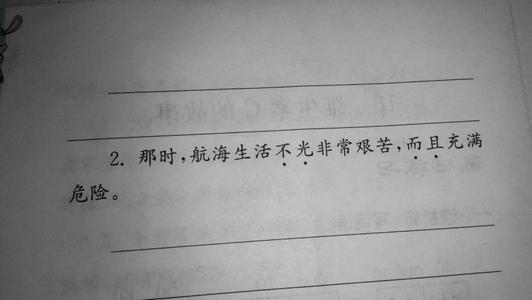 2. 那时，航海生活不光非常艰苦，而且充满
危险。